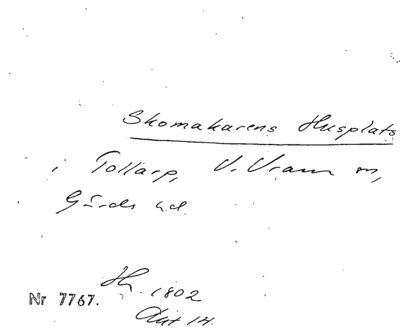 Skomakarens Husplats
i Tollarp, V. Vram sn,
Gärds hd.
Nr 7767.
1802
Akt 14.